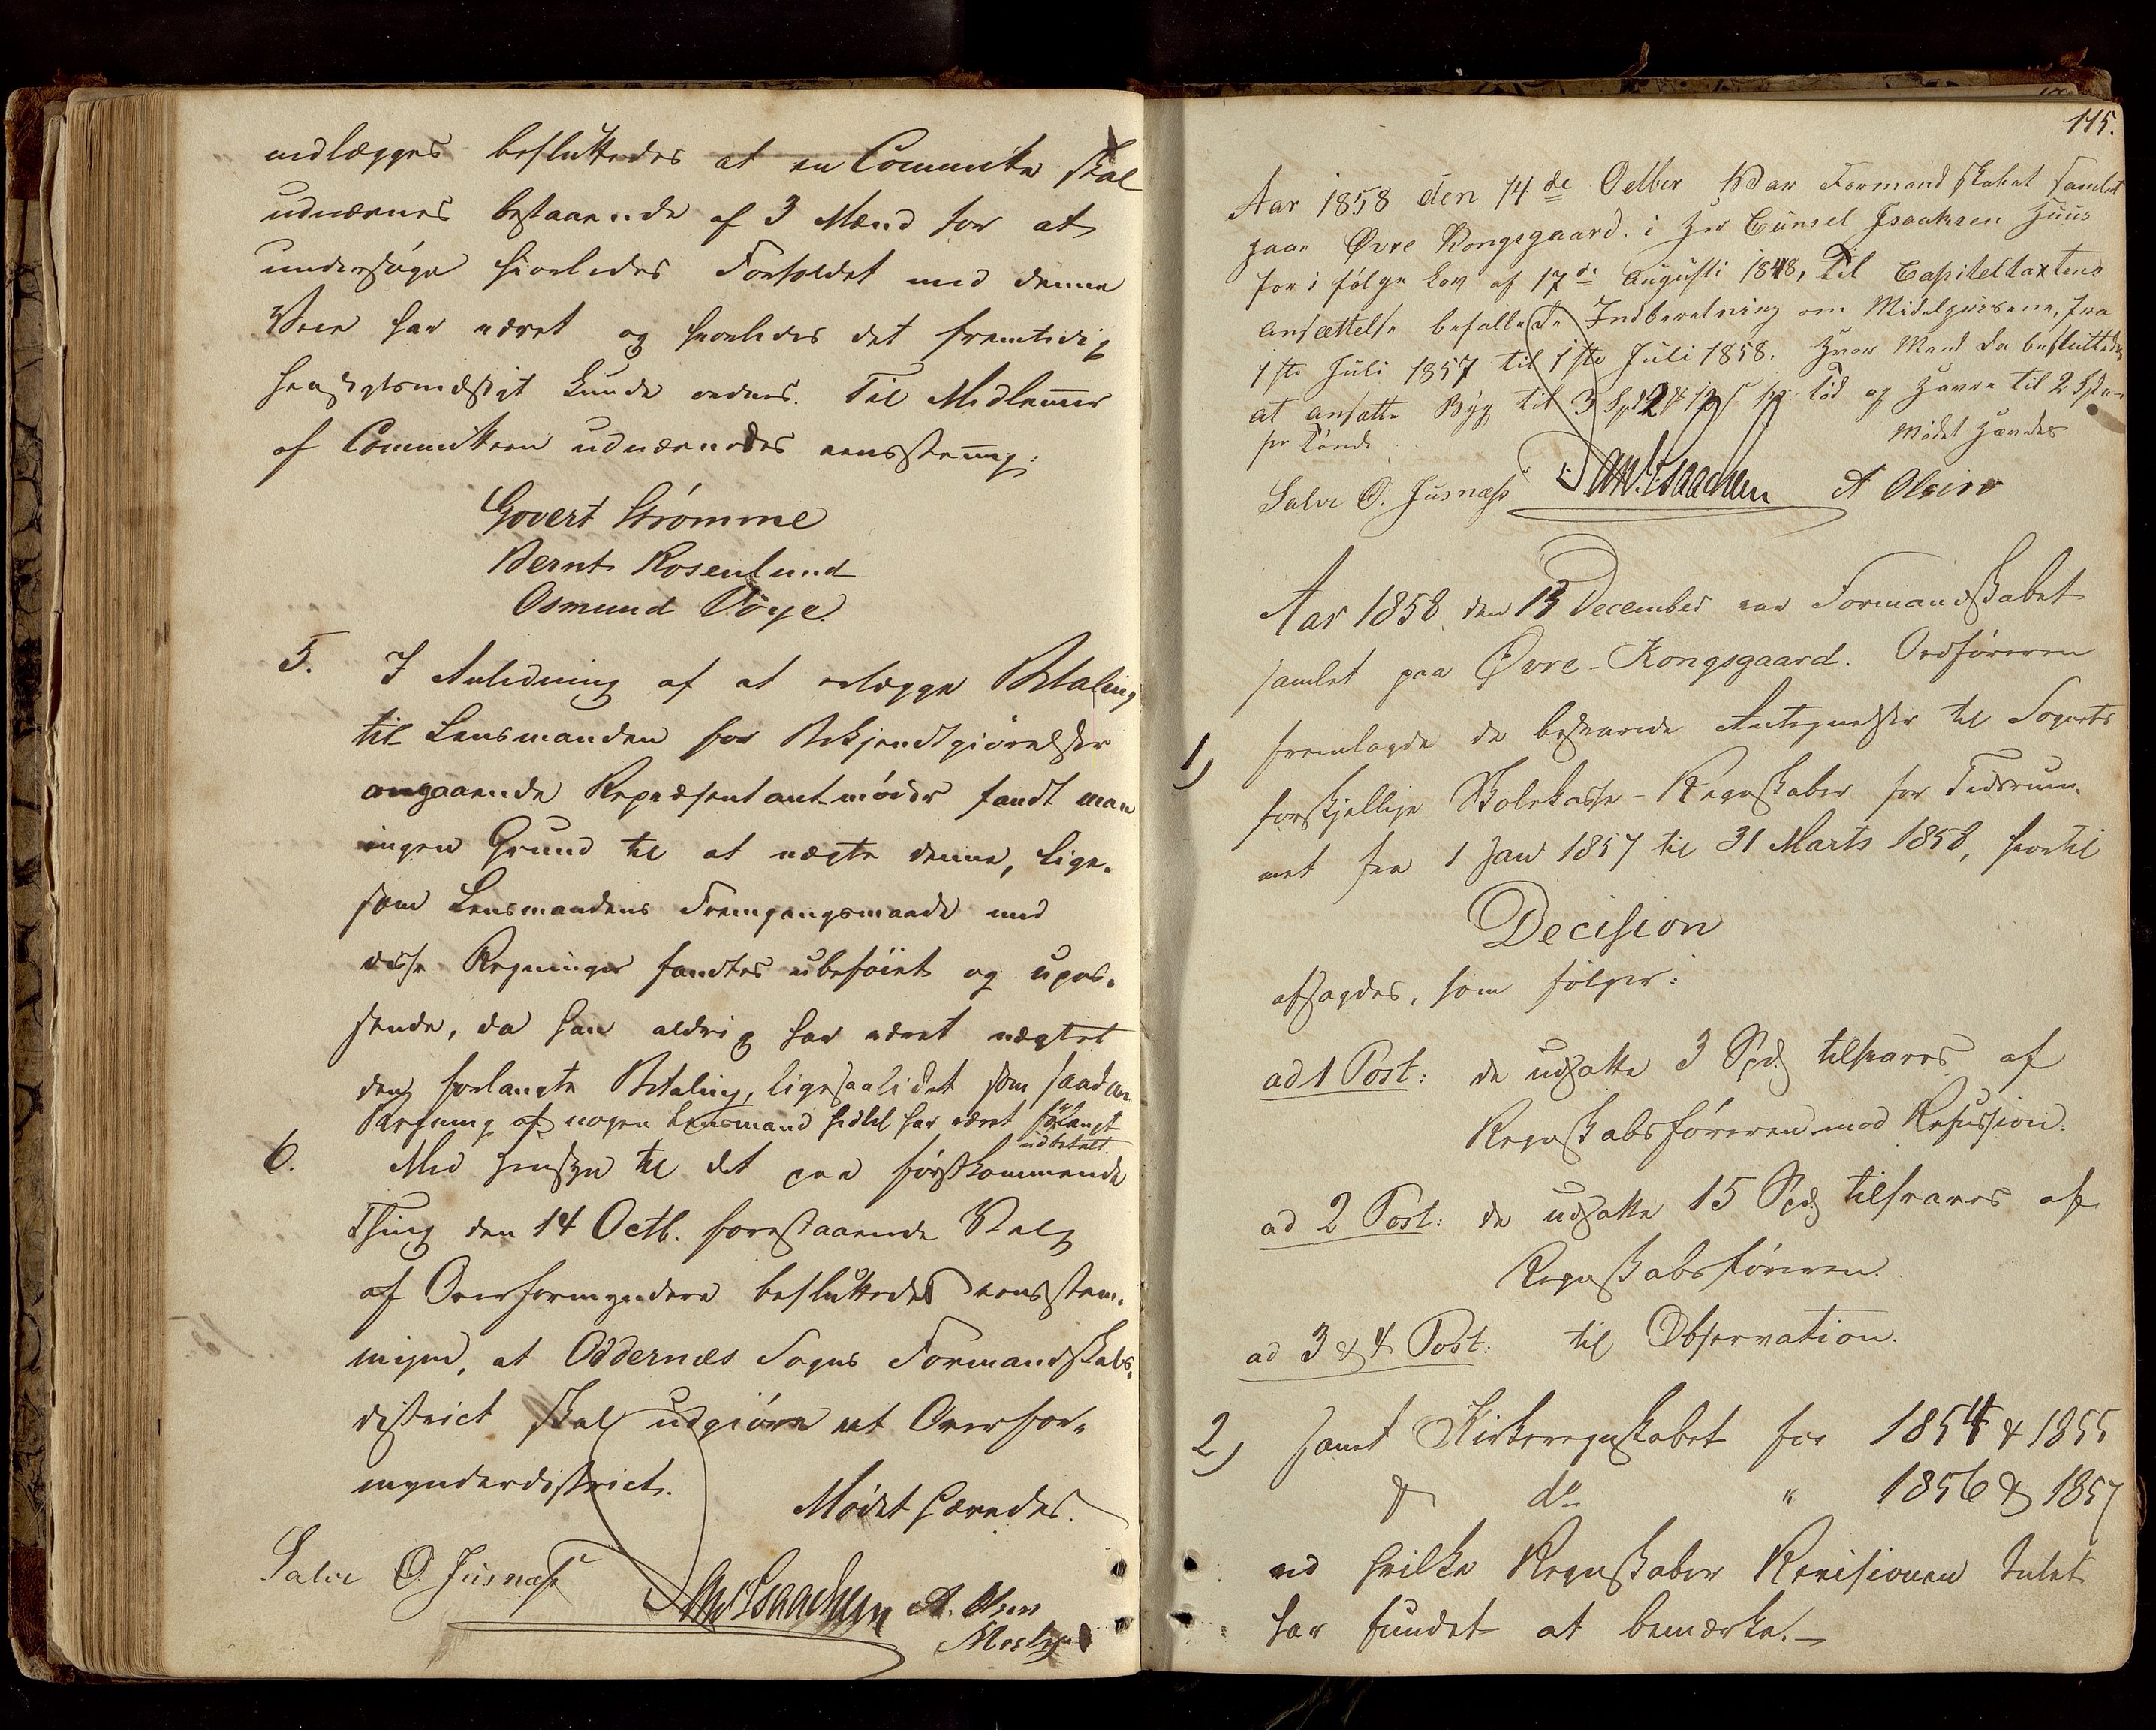 indlægges besluttedes at en Committe skal
udnævnes bestaaende af 3 Mænd for at
undersøge hvorledes Forholdet med denne
Veie har været og hvorledes det fremtidig
hensigtsmæssigt kunde ordnes. Til Medlemmer
af Committeen udnævnedes eensstemmig:
Govert Strømme
Bernt Rosenlund
Osmund Vøge.
5. I Anledning af at erlægge Betaling
til Lensmanden for Bekjendtgiørelser
angaaende Repræsentantmøder fandt man
ingen Grund til at nægte denne, lige-
som Lensmandens Fremgangsmaade med
disse Regninger fandtes ubeføiet og upas-
sende, da han aldrig har været nægtet
den forlangte Betaling, ligesaalidet som saadan
Regning af nogen Lensmand hidtil har været forlangt
udbetalt.
6. Med Hensyn til det paa førstkommende
Thing den 14 Octb. forestaaende Valg
af Overformyndere besluttedes eensstem-
migen, at Oddernæs Sogns Formandskabs-
district skal udgiøre et Overfor-
mynderdistrict.
Mødet hævedes.
Salve O. Justnæs Dan Isaachsen A. Olsen
Mosby
115.
Aar 1858 den 14de Octber var Formandskabet samlet
paa Øvre Kongsgaard i Hr Cunsel Isaaksen Huus
for i følge Lov af 17de Augusti 1848, Til Capiteltaxtens
ansættelse befallede Indberetning om Midelpriisene, fra
1ste Juli 1857 til 1ste Juli 1858. Hvor Mand da besluttede
at ansætte Byg til 3 Spd 24 s pr Tød og Havre til 2 Spd
pr Tønde Mødet Hævedes
Salve O. Jusnæs Dan. Isaachsen A Olsen
Aar 1858 den 13 December var Formandskabet
samlet paa Øvre-Kongsgaard. Ordføreren
1) fremlagde de besvarede Antegnelser til Sognets
forskjellige Skolekasse-Regnskaber for Tidsrum-
met fra 1 Jan 1857 til 31 Marts 1858, hvortil
Decision
afsagdes, som følger:
ad 1 Post: de udsatte 3 Spd. tilsvares af
Regnskabsføreren mod Refussion.
ad 2 Post: de udsatte 15 Spd. tilsvares af
Regnskabsføreren.
ad 3 & 4 Post: til Observation.
2) samt Kirkeregnskabet for 1854 & 1855
& do " 1856 & 1857
ved hvilke Regnskaber Revisionen Intet
har fundet at bemærke.—